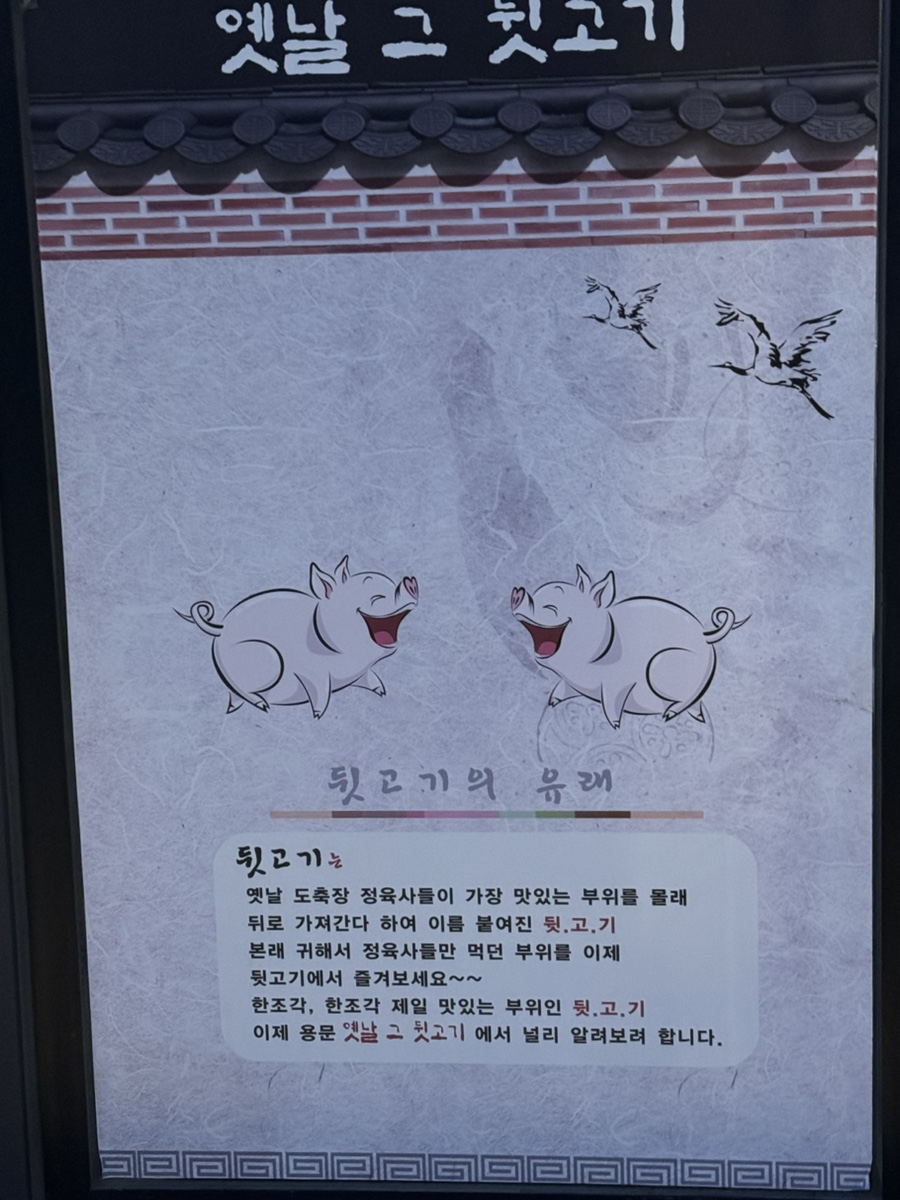 옛날 그 뒷고기
뒷고기의 유래
뒷고기는
옛날 도축장 정육사들이 가장 맛있는 부위를 몰래
뒤로 가져간다 하여 이름 붙여진 뒷.고.기
본래 귀해서 정육사들만 먹던 부위를 이제
뒷고기에서 즐겨보세요~~
한조각, 한조각 제일 맛있는 부위인 뒷.고.기
이제 용문 옛날 그 뒷고기 에서 널리 알려보려 합니다.